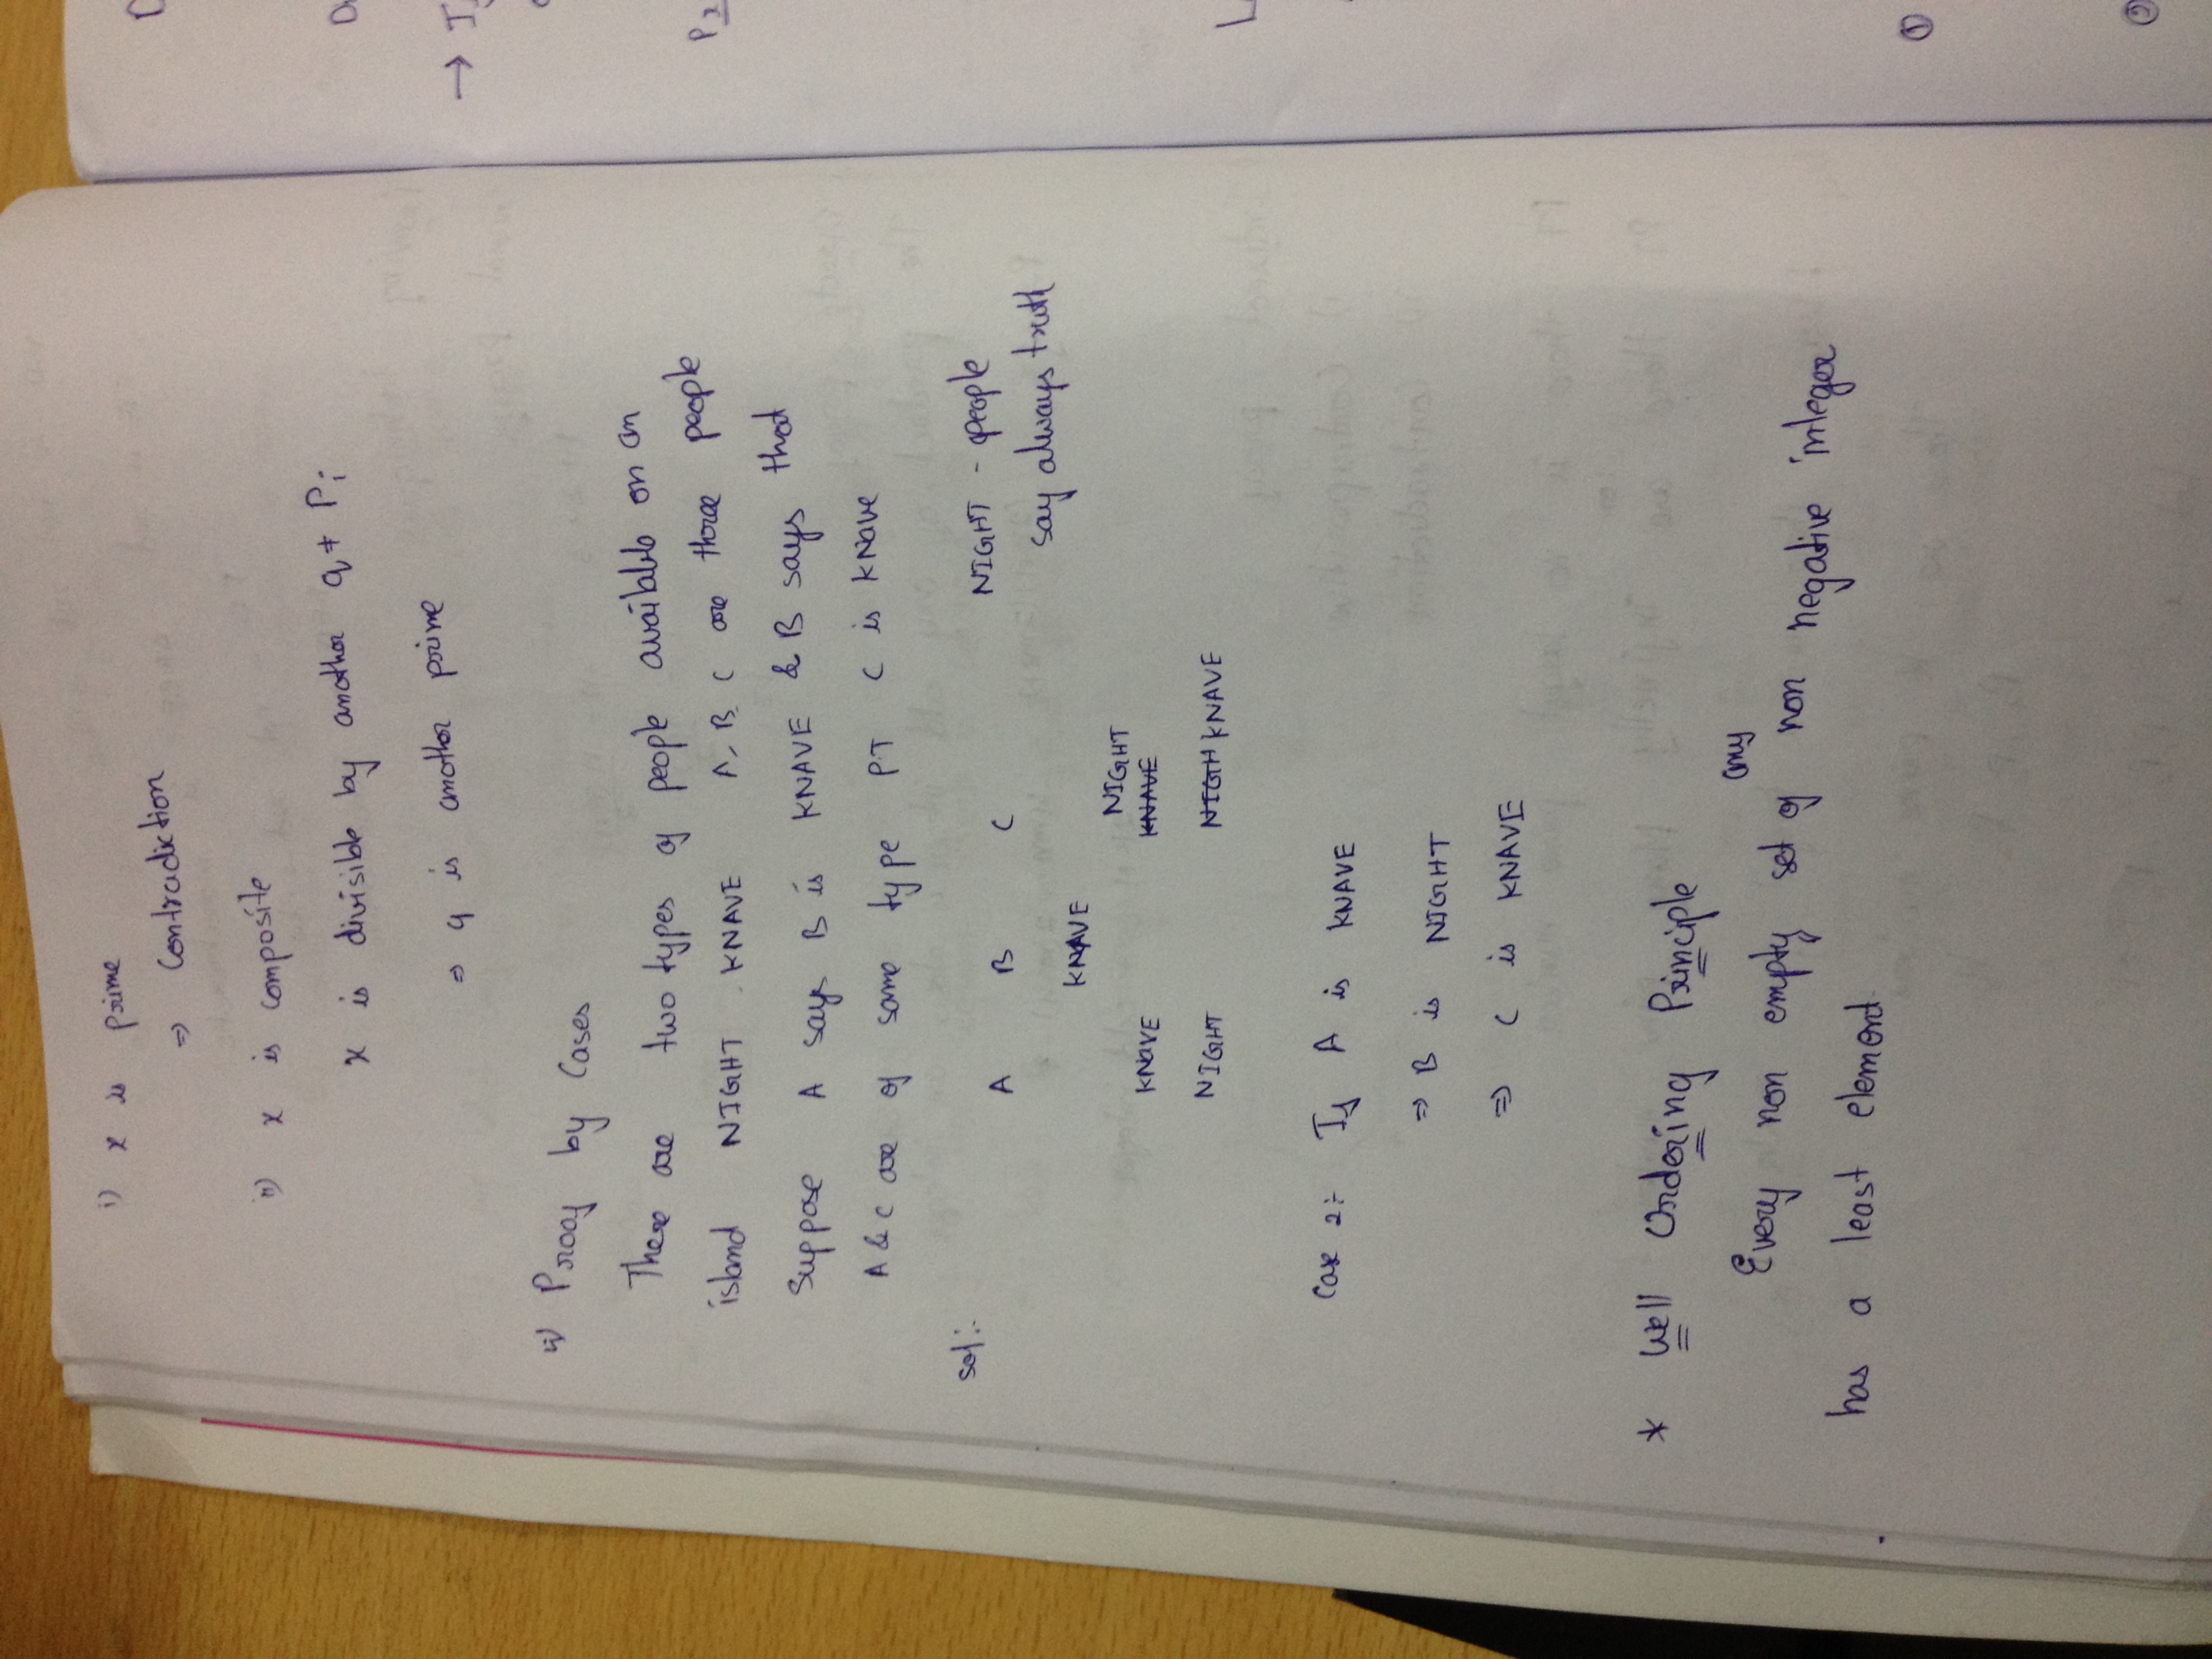 i) x is prime
⇒ Contradiction
ii) x is composite
x is divisible by another q ≠ Pi
⇒ q is another prime
ii) Proof by Cases
There are two types of people available on an
island NIGHT, KNAVE A, B, C are three people
Suppose A says B is KNAVE & B says that
A & C are of same type PT C is KNave
Sol:
NIGHT - people
say always truth
A B C
KNAVE
KNAVE NIGHT
KNAVE
NIGHT NIGH KNAVE
Case 2:- If A is KNAVE
⇒ B is NIGHT
⇒ C is KNAVE
* Well Ordering Principle
any
Every non empty set of non negative integer
has a least element.
→ I
P2
①
②